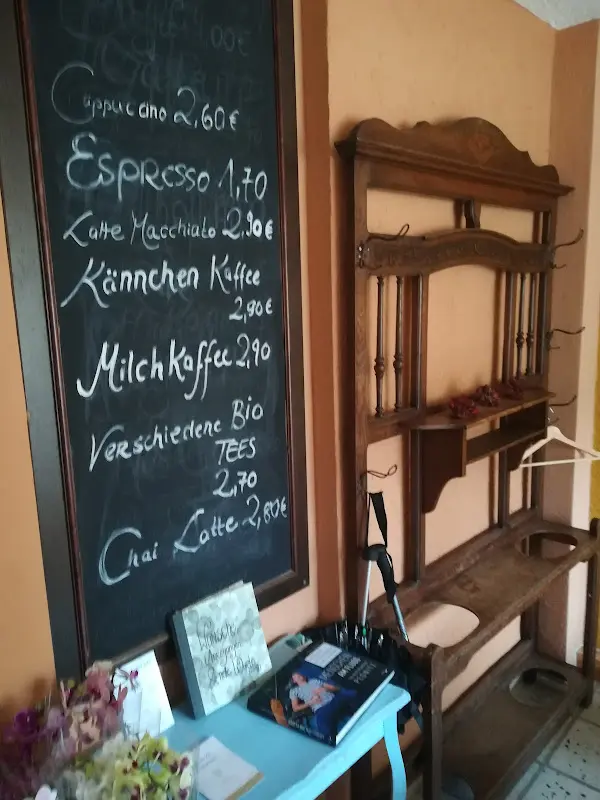 Cappuccino 2,60€
Espresso 1,70
Latte Macchiato 2,90€
Kännchen Kaffee
2,90€
Milchkaffee 2,90
Verschiedene Bio
TEES
2,70
Chai Latte 2,80€